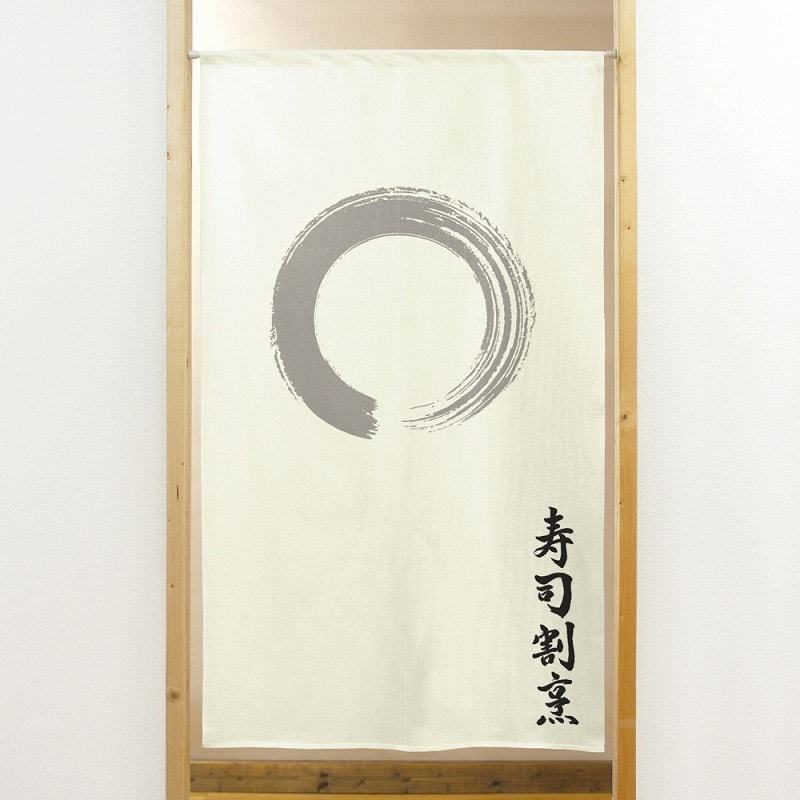 寿司割烹